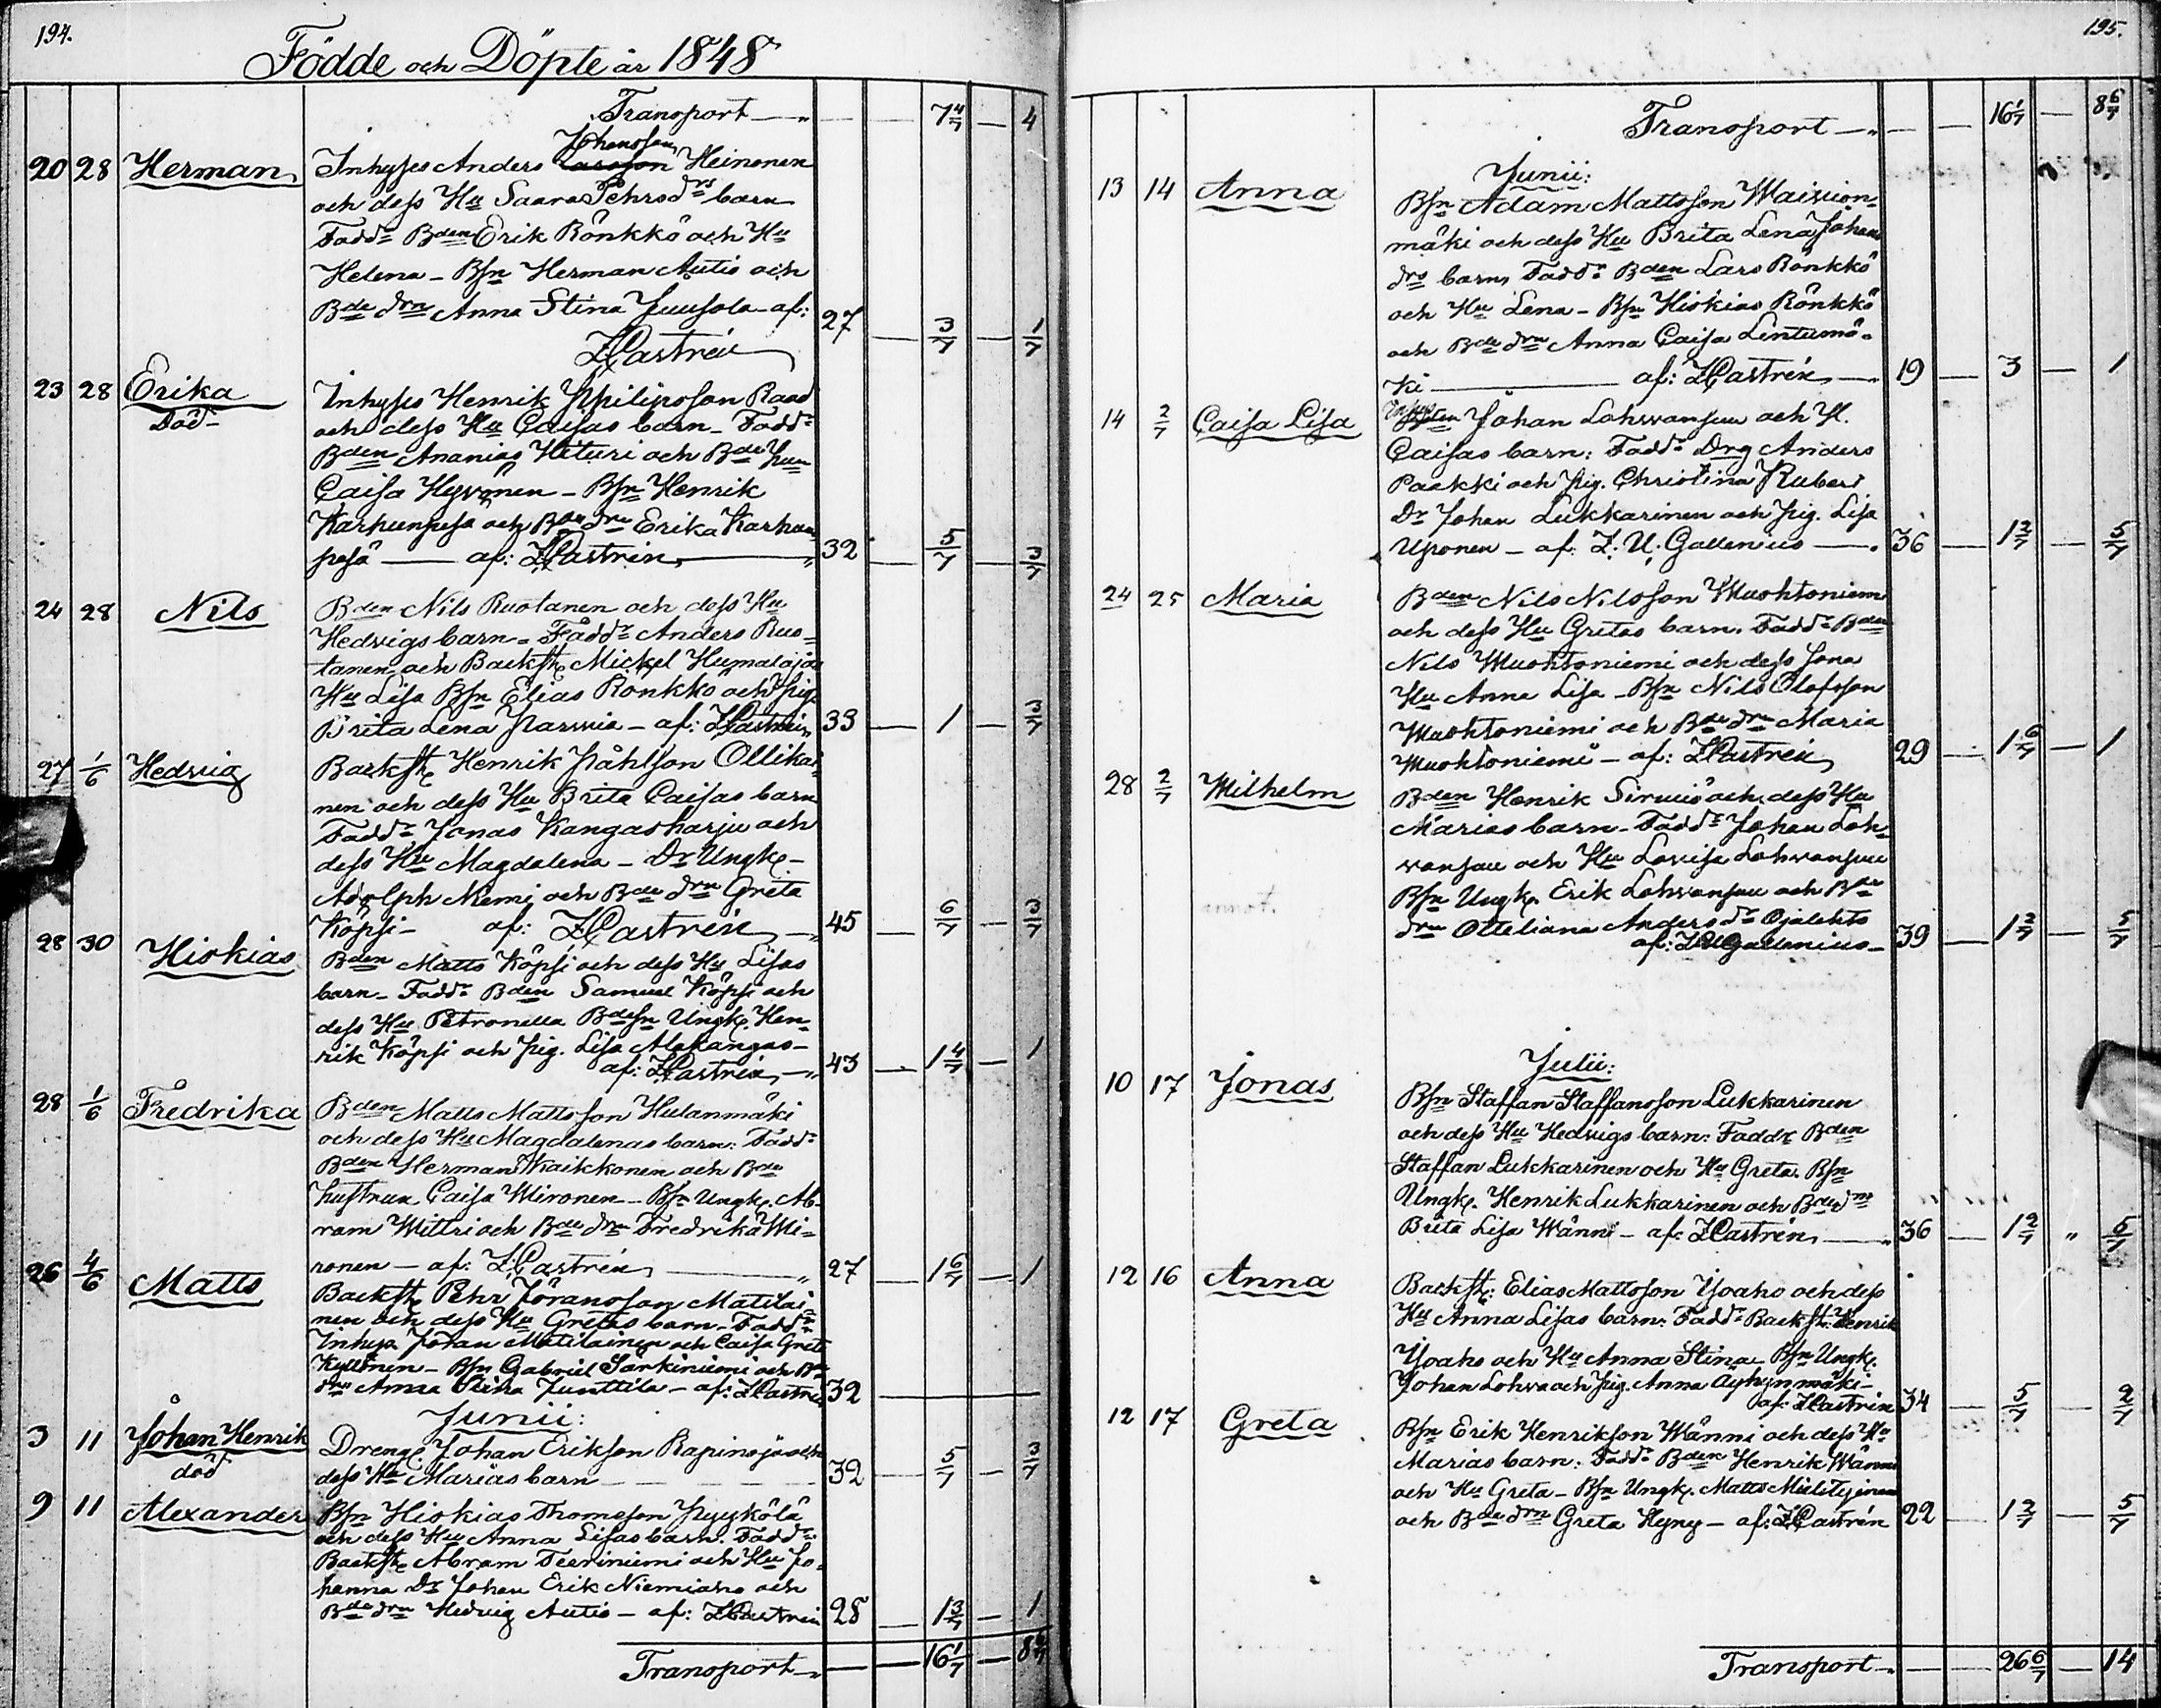 194.
Födde och Döpte år 1848
Transport — 7 4/7 — 4
Johansson
20 28 Herman Inhyses Anders Larsson Heinonen
och dess Hu Saara Pehrsdrs barn
Fadd. Bden Erik Rönkkö och Hu
Helena – Bsn Herman Autio och
Bde drn Anna Stina Juusola – af: 27 — 3/7 — 1/7
ZCastrén
23 28 Erika Inhyses Henrik Philipsson Raad
Död och dess Hu Caisas barn – Fadd.
Bden Ananias Hituri och Bde
Caisa Hyvönen – Bsn Henrik
Karhunpesä och Bde drn Erika Karhun
pesä — af: ZCastrén 32 — 5/7 — 3/7
24 28 Nils Bden Nils Ruotanen och dess Hu
Hedvigs barn – Fadd. Anders Ruo-
tanen och Backst. Mickel Humalajas
Hu Lisa Bsn Elias Rönkkö och Pig.
Brita Lena Parwia – af: ZCastrén 33 — 1 — 3/7
27 1/6 Hedvig Backst. Henrik Påhlson Ollikai-
nen och dess Hu Brita Caisas barn
Fadd. Jonas Kangasharju och
dess Hu Magdalena – Dr Ungk. –
Adolph Niemi och Bde drn Greta
Köpsi – af: ZCastrén 45 — 6/7 — 3/7
28 30 Hiskias Bden Matts Köpsi och dess Hu Lisas
barn – Fadd. Bden Samuel Köpsi och
dess Hu Petronella Bdesn Ungk. Hen-
rik Köpsi och Pig. Lisa Alakangas –
af: ZCastrén 43 — 1 4/7 — 1
28 1/6 Fredrika Bden Matts Mattsson Hulanmäki
och dess Hu Magdalenas barn: Fadd.
Bden Herman Kaikkonen och Bde
hustrun Caisa Mironen – Bsn Ungk. Ab-
ram Wittri och Bde drn Fredrika Mi-
ronen – af: ZCastrén 27 — 1 6/7 — 1
26 4/6 Matts Backst. Pehr Göransson Matilai-
nen och dess Hu Gretas barn – Fadd.
Inhys. Göran Matilainen och Caisa Greta
Kyllönen – Bsn Gabriel Särkiniemi och Bde
drn Anna Junttila – af: ZCastrén 32
Junii:
3 11 Johan Henrik Dreng. Johan Erikson Rapinoja och
död dess Hu Marias barn 32 — 5/7 — 3/7
9 11 Alexander Bsn Hiskias Thomsson Pyykölä
och dess Hu Anna Lisas barn. Fadd.
Backst. Abram Terviniemi och Hu Jo-
hanna Dr Johan Erik Niemiaho och
Bde drn Hedvig Autio – af: ZCastrén 28 — 1 3/7 — 1
Transport — 16 1/7 — 8 6/7
195.
Transport — 16 1/7 — 8 6/7
Junii:
13 14 Anna Bsn Adam Mattsson Waision-
mäki och dess Hu Brita Lena Johans
drs barn, Fadd. Bden Lars Rönkkö
och Hu Lena – Bsn Hiskias Rönkkö
och Bde drn Anna Caisa Lentumä-
ki — af: ZCastrén — 19 — 3 — 1
14 2/7 Caisa Lisa Inhys Johan Lohwansuu och H.
Caisas barn: Fadd. Drg Anders
Paakki och Pig. Christina Rubert
Dr Johan Lukkarinen och Pig. Lisa
Uponen – af: Z. U. Gallenius — 36 — 1 2/7 — 5/7
24 25 Maria Bden Nils Nilsson Muohtoniemi
och dess Hu Gretas barn. Fadd. Bden
Nils Muohtoniemi och dess sona
Hu Anna Lisa – Bsn Nils Olofsson
Muohtoniemi och Bde drn Maria
Muohtoniemi – af: ZCastrén 29 — 1 6/7 — 1
28 2/7 Wilhelm Bden Henrik Sirwiö och dess Hu
Marias barn – Fadd. Johan Loh-
wansuu och Hu Lovisa Lohwansuu
Bsn Ungk. Erik Lohwansuu och Bde
drn Otteliana Andersdr Ojalehto
af: ZUGallenius – 39 — 1 2/7 — 5/7
Julii:
10 17 Jonas Bsn Staffan Staffansson Lukkarinen
och dess Hu Hedvigs barn: Faddr Bden
Staffan Lukkarinen och Hu Greta. Bsn
Ungk. Henrik Lukkarinen och Bde drn
Brita Lisa Wänni – af: ZCastrén — 36 — 1 2/7 " 5/7
12 16 Anna Backst: Elias Mattsson Yoaho och dess
Hu Anna Lisas barn: Fadd. Backst. Henrik
Yoaho och Hu Anna Stina – Bsn Ungk.
Johan Lohwa och Pig. Anna Ayhynmäki –
af: ZCastrén 34 — 5/7 — 2/7
12 17 Greta Bsn Erik Henrikson Wänni och dess Hu
Marias barn: Fadd. Bden Henrik Wänni
och Hu Greta – Bsn Ungk. Matts Mielityinen
och Bde drn Greta Hyny – af: ZCastrén 22 — 1 2/7 — 5/7
Transport — 26 6/7 — 14